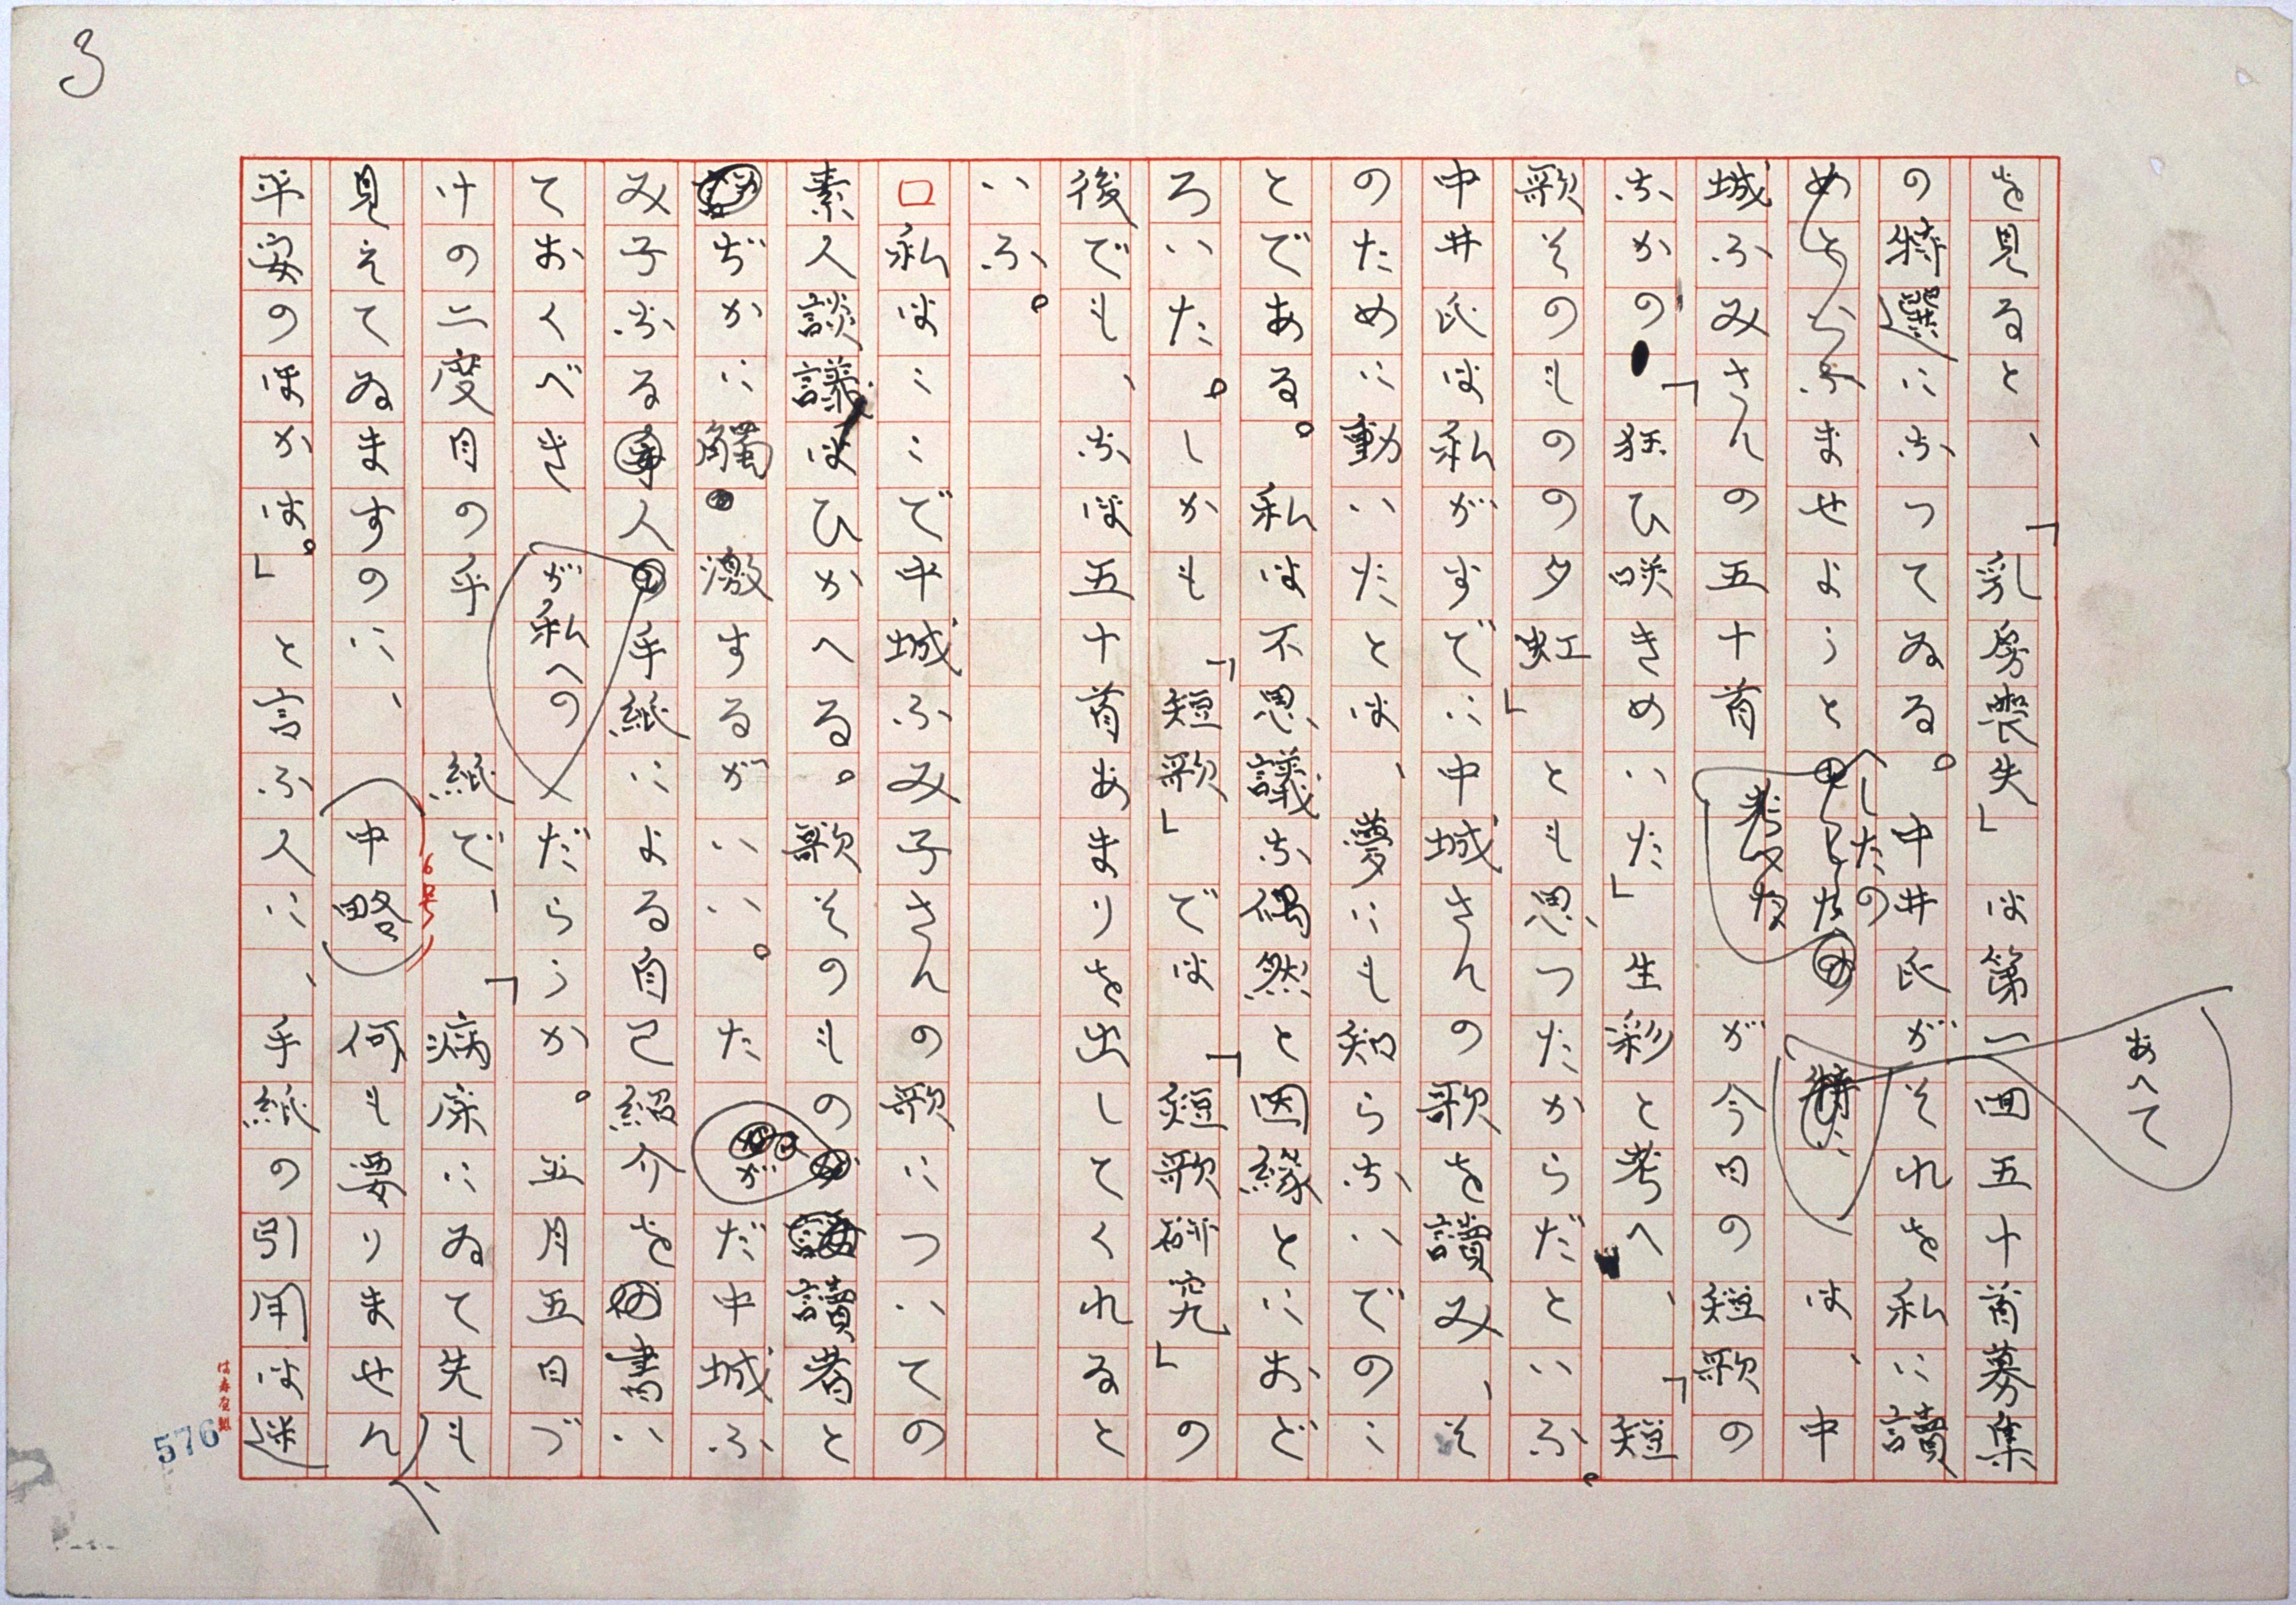 3
を見ると、「乳房喪失」は第一回五十首募集
の特選になつてゐる。中井氏がそれを私に讀
ませようと
したの
あへて
は、中
城ふみさんの五十首が今日の短歌の
なかの「狂ひ咲きめいた」生彩と考へ、「短
歌そのものの夕虹」とも思つたからだといふ。
中井氏は私がすでに中城さんの歌を讀み、そ
のために動いたとは、夢にも知らないでのこ
とである。私は不思議な偶然と因縁とにおど
ろいた。しかも「短歌」では「短歌研究」の
後でも、なほ五十首あまりを出してくれると
いふ。
□私はここで中城ふみ子さんの歌についての
素人談議はひかへる。歌そのものが讀者と
ぢかに觸激するがいい。ただ中城ふ
み子なる人が私への手紙による自己紹介を書い
ておくべきだらうか。五月五日づ
けの二度目の手紙で、「病床にゐて先も
見えてゐますのに、(中略)何も要りません
平安のほかは。」と言ふ人に、手紙の引用は迷
576